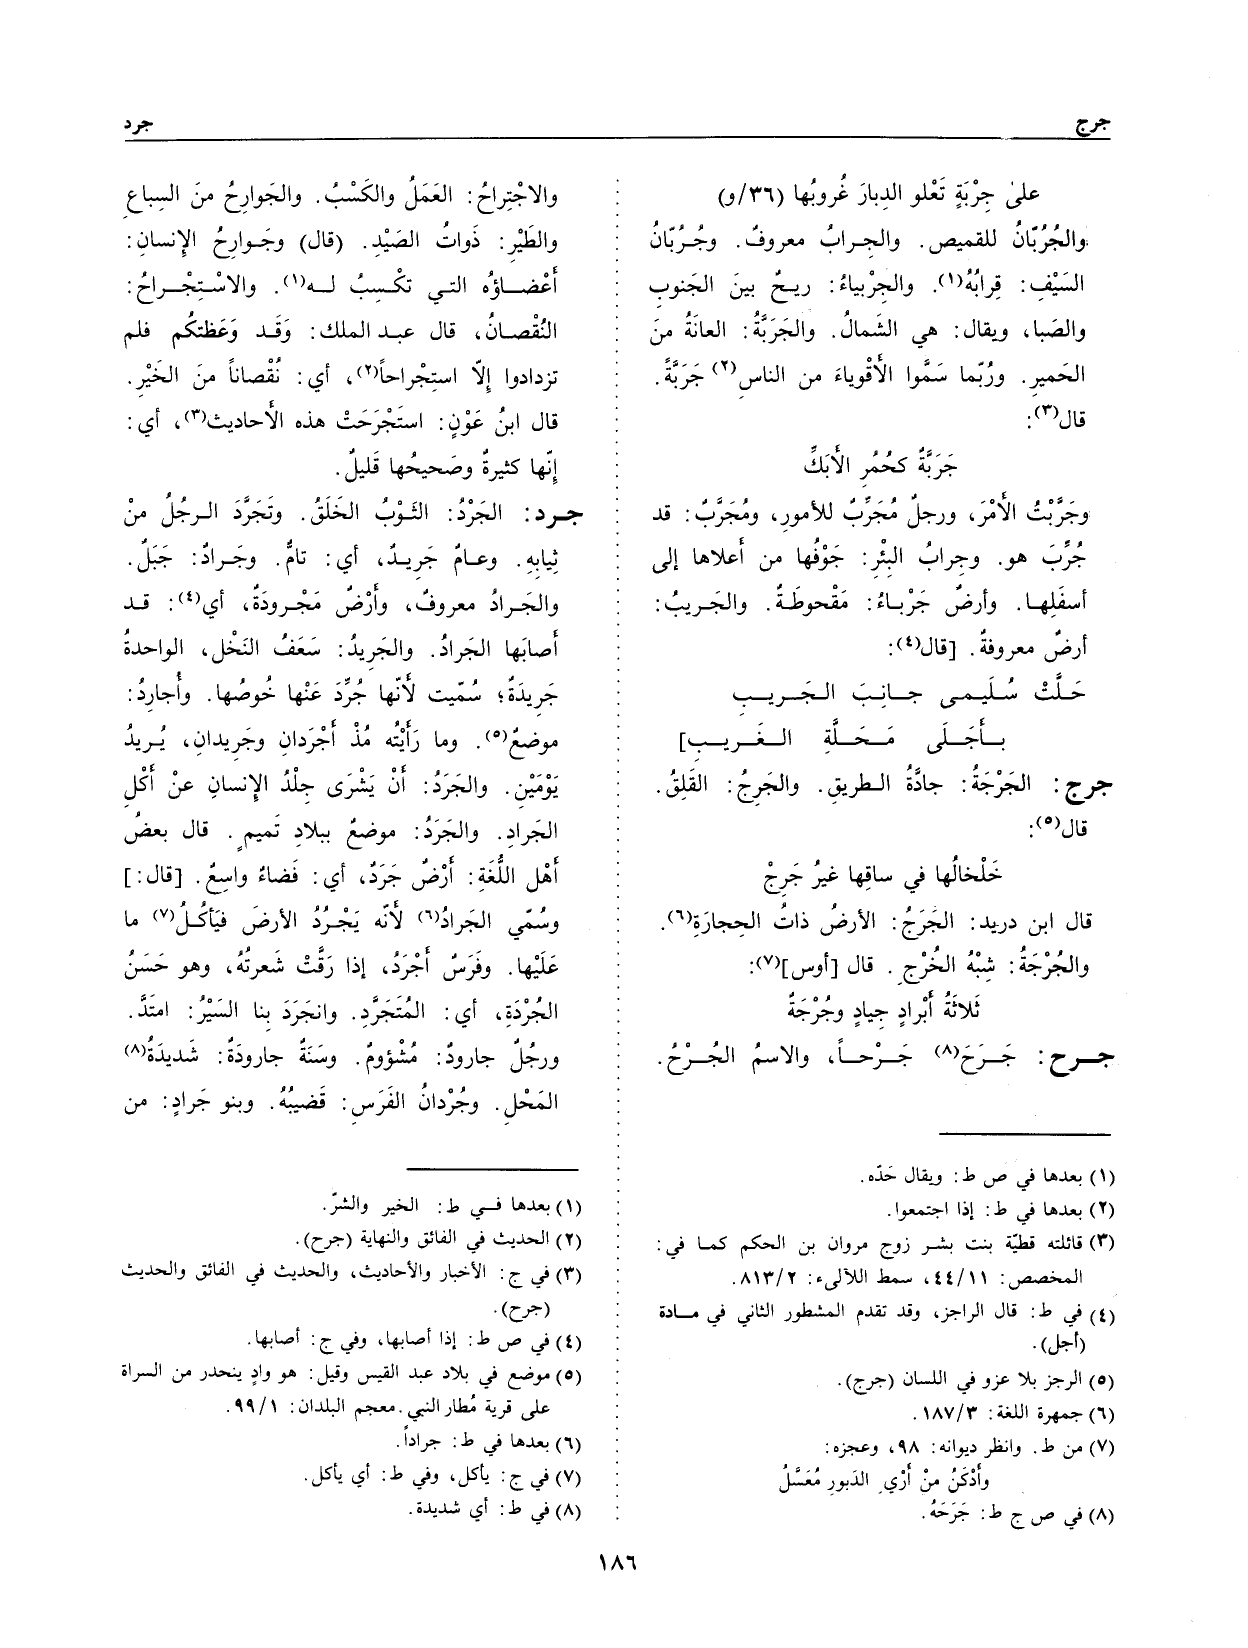 جرج
جرد
على جِرْبَةٍ تَعْلو الدِبارَ غُروبُها (٣٦/و)
والجُرُبّانُ للقميص. والجِرابُ معروفٌ. وجُرُبّانُ
السَيْفِ: قِرابُهُ(١). والجِرْبياءُ: ريحٌ بينَ الجَنوبِ
والصَبا، ويقال: هي الشَمالُ. والجَرَبَّةُ: العانَةُ منَ
الحَميرِ. ورُبّما سَمَّوا الأَقْوياءَ من الناس(٢) جَرَبَّةً.
قال(٣):
جَرَبَّةٌ كحُمُرِ الأَبَكِّ
وجَرَّبْتُ الأَمْرَ، ورجلٌ مُجَرِّبٌ للأمورِ، ومُجَرَّبٌ: قد
جُرِّبَ هو. وجرابُ البئْرِ: جَوْفُها من أعلاها إلى
أسفَلِهـا. وأرضٌ جَرْبـاءُ: مَقْحوطَةٌ. والجَريبُ:
أرضٌ معروفةٌ. [قال(٤):
حَلَّتْ سُلَيمى جانِبَ الجَريبِ
بأَجَلى مَحَلَّةِ الغَريبِ]
جرج: الجَرْجَةُ: جادَّةُ الطريقِ. والجَرِجُ: القَلِقُ.
قال(٥):
خَلْخالُها في ساقِها غيرُ جَرِجْ
قال ابن دريد: الجَرَجُ: الأرضُ ذاتُ الحِجارَةِ(٦).
والجُرْجَةُ: شِبْهُ الخُرْجِ. قال [أوس](٧):
ثَلاثَةُ أَبْرادٍ جِيادٍ وجُرْجَةٌ
جرح: جَرَحَ(٨) جَرْحاً، والاسمُ الجُرْحُ.
(١) بعدها في ص ط: ويقال حَدّه.
(٢) بعدها في ط: إذا اجتمعوا.
(٣) قائلته قطيّة بنت بشر زوج مروان بن الحكم كما في:
المخصص: ٤٤/١١، سمط اللآلىء: ٨١٣/٢.
(٤) في ط: قال الراجز، وقد تقدم المشطور الثاني في مادة
(أجل).
(٥) الرجز بلا عزو في اللسان (جرج).
(٦) جمهرة اللغة: ١٨٧/٣.
(٧) من ط. وانظر ديوانه: ٩٨، وعجزه:
وأَدْكَنُ منْ أَرْيِ الدَبورِ مُعَسَّلُ
(٨) في ص ج ط: جَرَحَهُ.
والاجْتِراحُ: العَمَلُ والكَسْبُ. والجَوارِحُ منَ السِباعِ
والطَيْرِ: ذَواتُ الصَيْدِ. (قال) وجَوارِحُ الإنسانِ:
أَعْضاؤه التي تكْسِبُ له(١). والاسْتِجْراحُ:
النُقْصانُ، قال عبد الملك: وَقَد وَعَظتكُم فلم
تزدادوا إلاّ استِجْراحاً(٢)، أي: نُقْصاناً منَ الخَيْرِ.
قال ابنُ عَوْنٍ: استَجْرَحَتْ هذه الأَحاديث(٣)، أي:
إنّها كثيرةٌ وصَحيحُها قَليلٌ.
جرد: الجَرْدُ: الثَوْبُ الخَلَقُ. وتَجَرَّدَ الرجُلُ منْ
ثِيابِهِ. وعامٌ جَريدٌ، أي: تامٌّ. وجَرادٌ: جَبَلٌ.
والجَرادُ معروفٌ، وأَرْضٌ مَجْرودَةٌ، أي(٤): قد
أصابَها الجَرادُ. والجَريدُ: سَعَفُ النَخْلِ، الواحدةُ
جَريدَةٌ؛ سُمّيت لأَنّها جُرِّدَ عَنْها خُوصُها. وأُجارِدُ:
موضعٌ(٥). وما رَأَيْتُه مُذْ أَجْرَدانِ وجَريدانِ، يُريدُ
يَوْمَيْنِ. والجَرَدُ: أَنْ يَشْرَى جِلْدُ الإنسانِ عنْ أَكْلِ
الجَرادِ. والجَرَدُ: موضعٌ ببلادِ تَميمٍ. قال بعضُ
أَهْلِ اللُّغَةِ: أَرْضٌ جَرَدٌ، أي: فَضاءٌ واسِعٌ. [قال:]
وسُمّي الجَرادُ(٦) لأنّه يَجْرُدُ الأرضَ فيَأكُلُ(٧) ما
عَلَيْها. وفَرَسٌ أَجْرَدُ، إذا رَقَّتْ شَعرتُهُ، وهو حَسَنُ
الجُرْدَةِ، أي: المُتَجَرَّدِ. وانجَرَدَ بنا السَيْرُ: امتَدَّ.
ورجُلٌ جارودٌ: مُشْؤومٌ. وسَنَةٌ جارودَةٌ: شَديدَةُ(٨)
المَحْلِ. وجُرْدانُ الفَرَسِ: قَضيبُهُ. وبنو جَرادٍ: من
(١) بعدها في ط: الخير والشرّ.
(٢) الحديث في الفائق والنهاية (جرح).
(٣) في ج: الأخبار والأحاديث، والحديث في الفائق والحديث
(جرح).
(٤) في ص ط: إذا أصابها، وفي ج: أصابها.
(٥) موضع في بلاد عبد القيس وقيل: هو وادٍ ينحدر من السراة
على قرية مُطار النبي. معجم البلدان: ٩٩/١.
(٦) بعدها في ط: جراداً.
(٧) في ج: يأكل، وفي ط: أي يأكل.
(٨) في ط: أي شديدة.
١٨٦